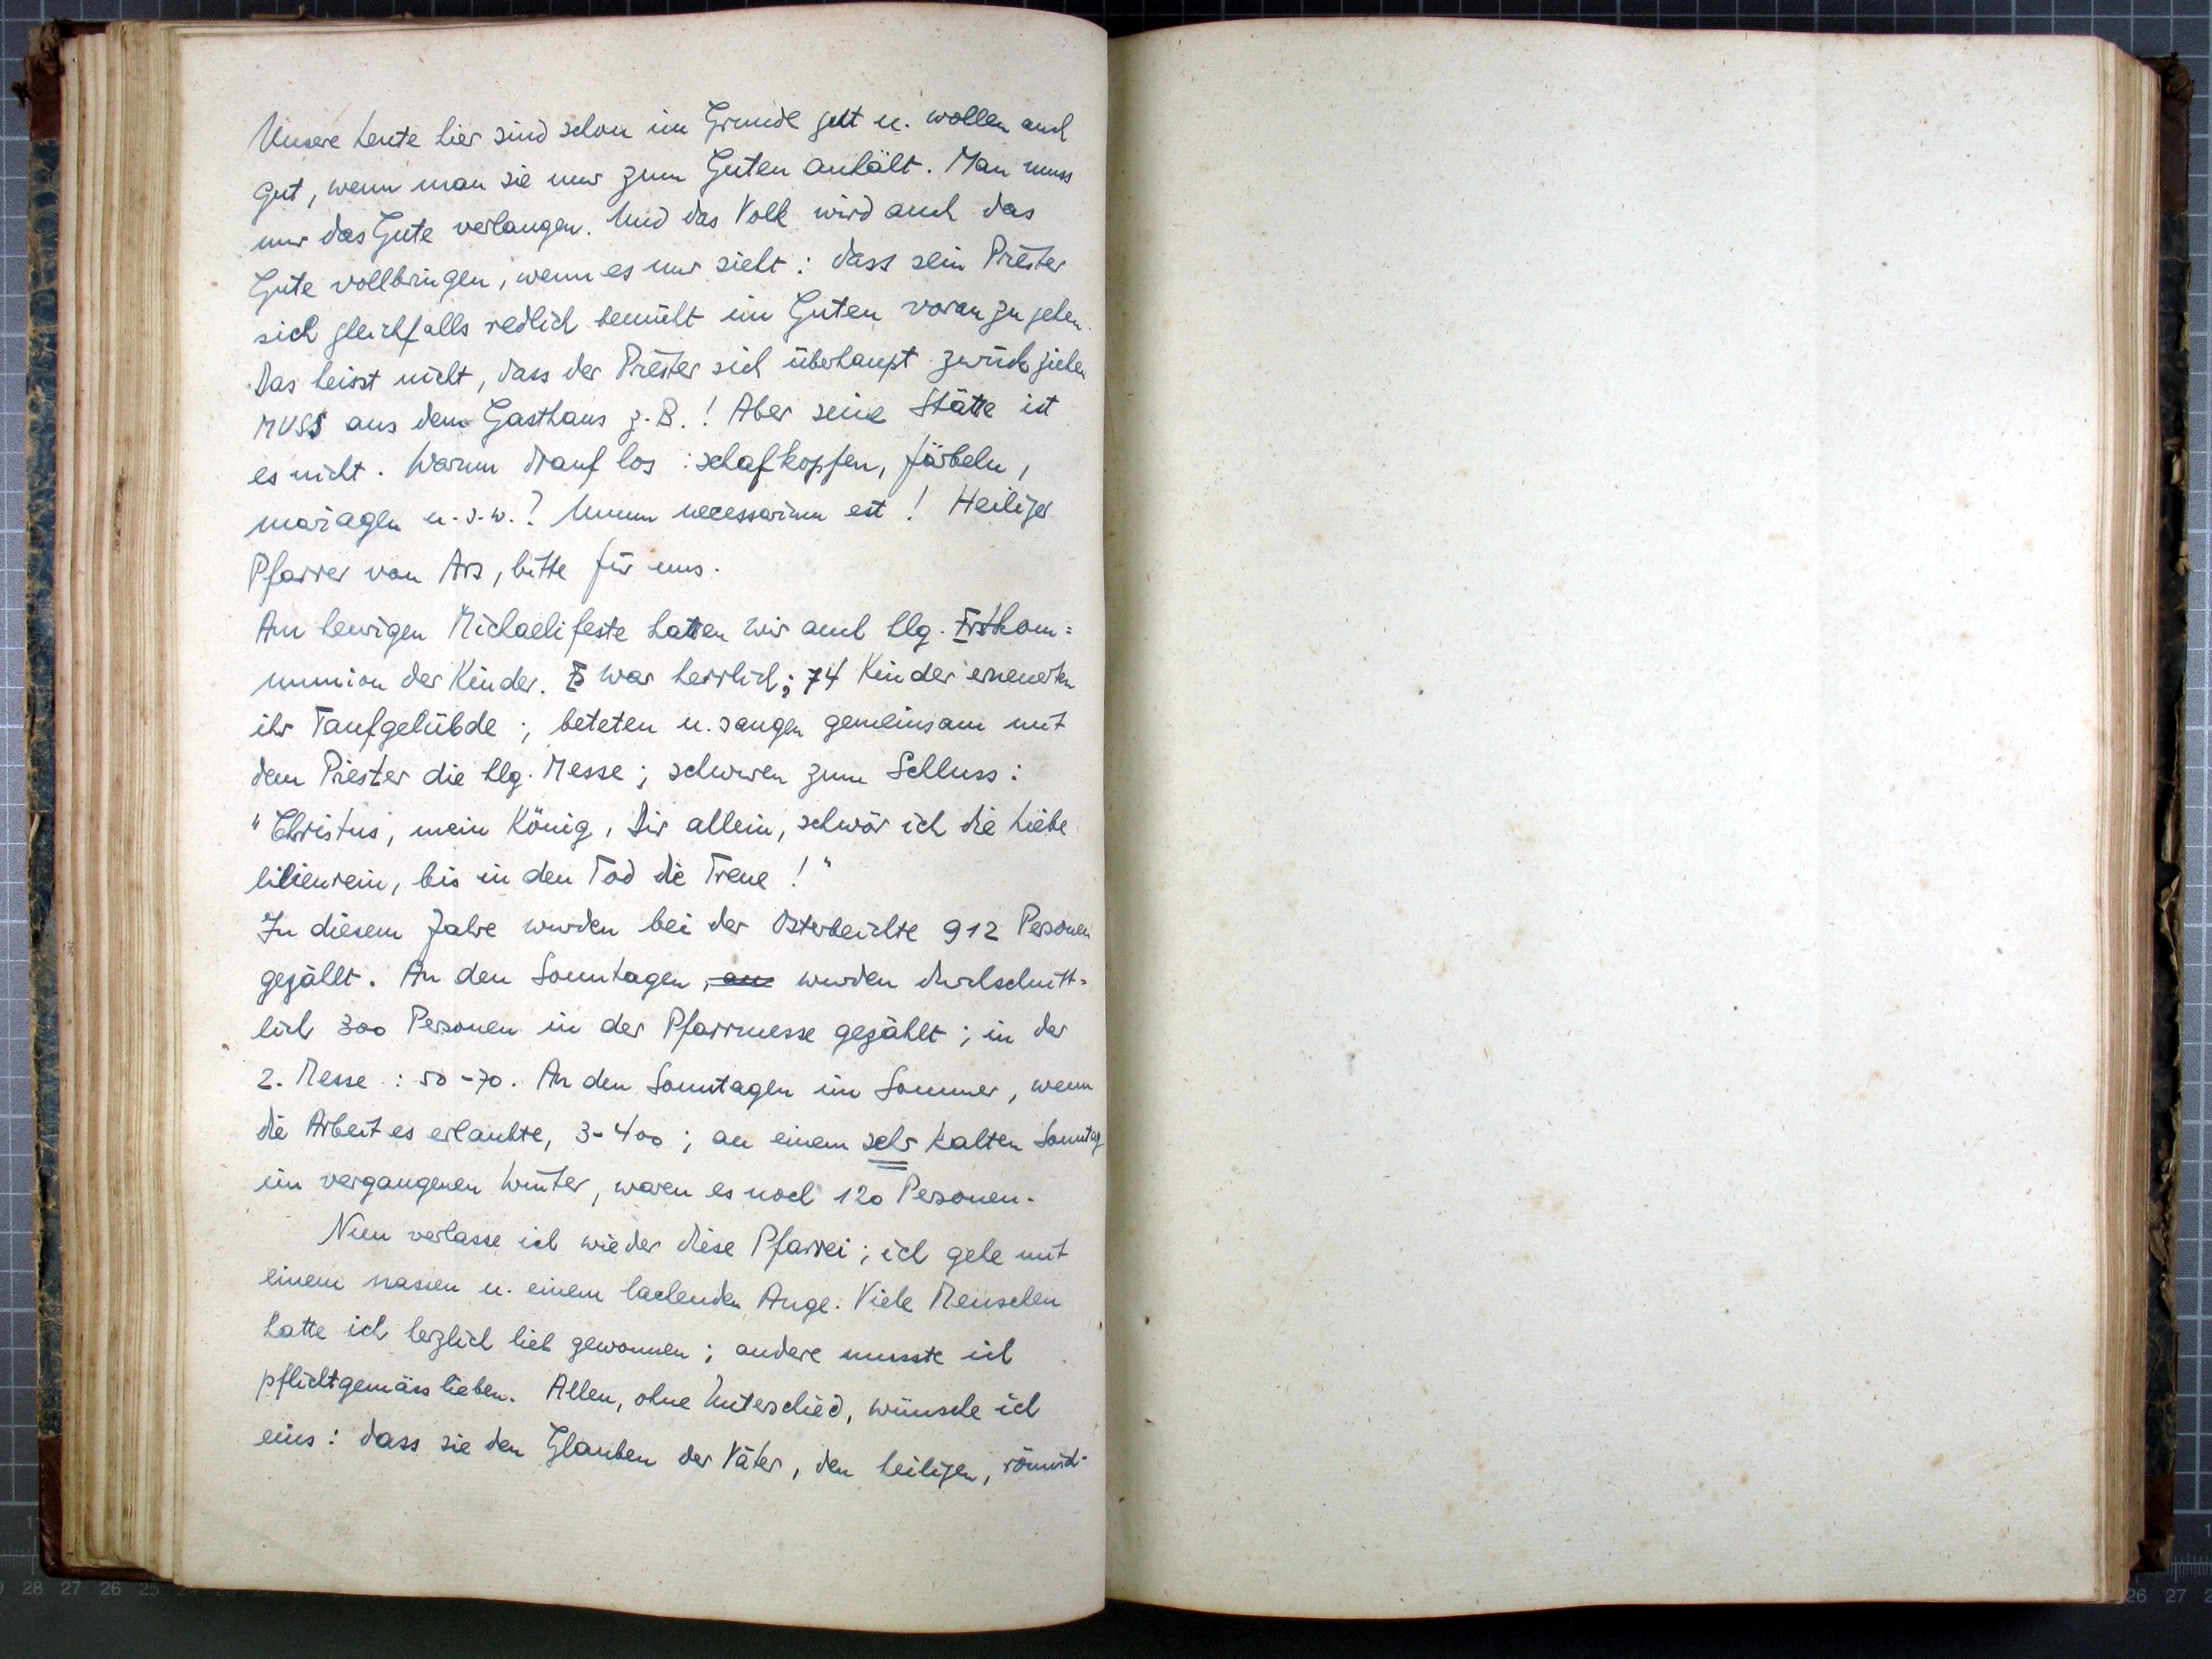 Unsere Leute hier sind schon im Grunde gut u. wollen auch
gut, wenn man sie nur zum Guten anhält. Man muss
nur das Gute verlangen. Und das Volk wird auch das
Gute vollbringen, wenn es nur sieht: dass sein Priester
sich gleichfalls redlich bemüht im Guten voranzugehen.
Das heisst nicht, dass der Priester sich überhaupt zurückziehen
MUSS aus dem Gasthaus z.B.! Aber seine Stätte ist
es nicht. Warum drauf los: schafkopfen, färbeln,
mariagen u.s.w.? Unum necessarium est! Heiliger
Pfarrer von Ars, bitte für uns.
Am heurigen Michaelifeste hatten wir auch hlg. Erstkom=
munion der Kinder. Es war herrlich; 74 Kinder erneuerten
ihr Taufgelübde; beteten u. sangen gemeinsam mit
dem Priester die hlg. Messe; schwuren zum Schluss:
"Christus, mein König, Dir allein, schwör ich die Liebe
lilienrein, bis in den Tod die Treue!"
In diesem Jahre wurden bei der Osterbeichte 912 Personen
gezählt. An den Sonntagen, an wurden durchschnitt=
lich 300 Personen in der Pfarrmesse gezählt; in der
2. Messe: 50-70. An den Sonntagen im Sommer, wenn
die Arbeit es erlaubte, 3-400; an einem sehr kalten Sonntag
im vergangenen Winter, waren es noch 120 Personen.
Nun verlasse ich wieder diese Pfarrei; ich gehe mit
einem nassen u. einem lachenden Auge. Viele Menschen
hatte ich herzlich lieb gewonnen; andere musste ich
pflichtgemäss lieben. Allen, ohne Unterschied, wünsche ich
eins: dass sie den Glauben der Väter, den heiligen, römisch-
28 27 26 25
26 27